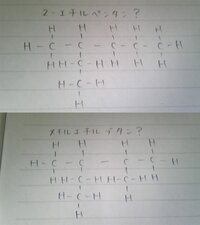 2-エチルペンタン?
H H H H H
H-C-C-C-C-C-H
H H-C-H H H H
H-C-H
H
メチルエチルブタン?
H H H H
H-C-C-C-C-H
H H-C-H H-C-H H
H-C-H H
H